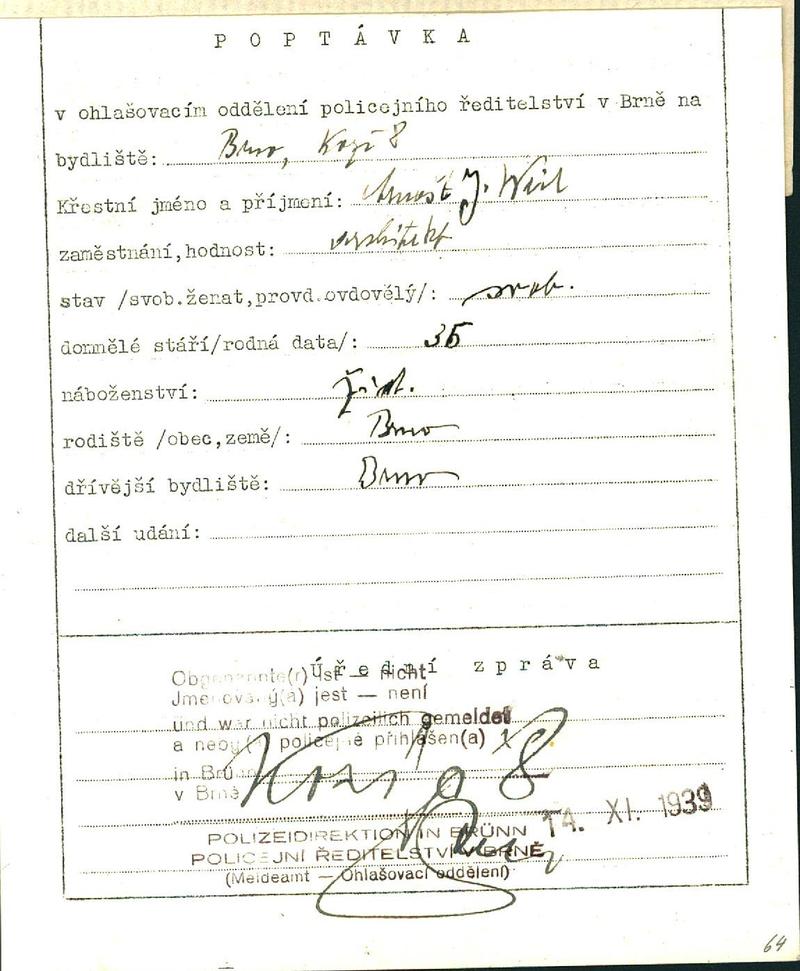 POPTÁVKA
v ohlašovacím oddělení policejního ředitelství v Brně na
bydliště: Brno, Kozí 8
Křestní jméno a příjmení: Arnošt J. Weil
zaměstnání,hodnost: architekt
stav /svob.ženat,provd.ovdovělý/: svob.
domnělé stáří/rodná data/: 35
náboženství: žid.
rodiště /obec,země/: Brno
dřívější bydliště: Brno
další udání:
Úřední zpráva
Obgenannte(r) ist — nicht
Jmenovaný(á) jest — není
und war nicht polizeilich gemeldet
a nebyl(a) policejně přihlášen(a) x
in Brünn
v Brně
8
14. XI. 1939
POLIZEIDIREKTION IN BRÜNN
POLICEJNÍ ŘEDITELSTVÍ V BRNĚ
(Meldeamt — Ohlašovací oddělení)
64